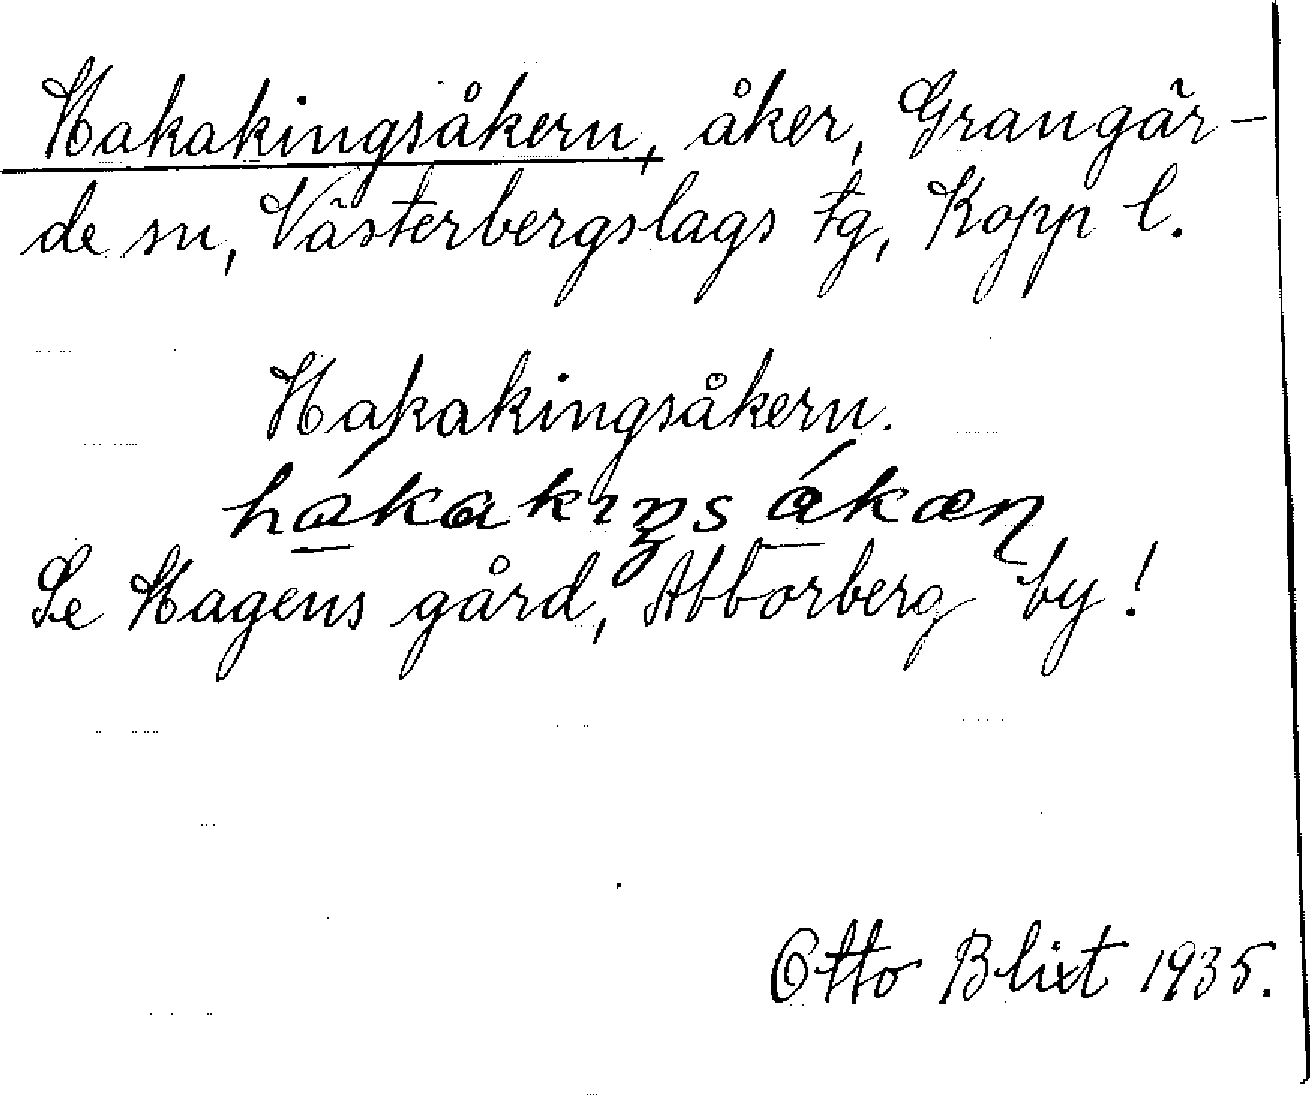 Hakakingsåkern, åker, Grangär-
de sn, Västerbergslags tg, Kopp l.
Hakakingsåkern.
hákakıŋsákæn
Se Hagens gård, Abborberg by!
Otto Blixt 1935.